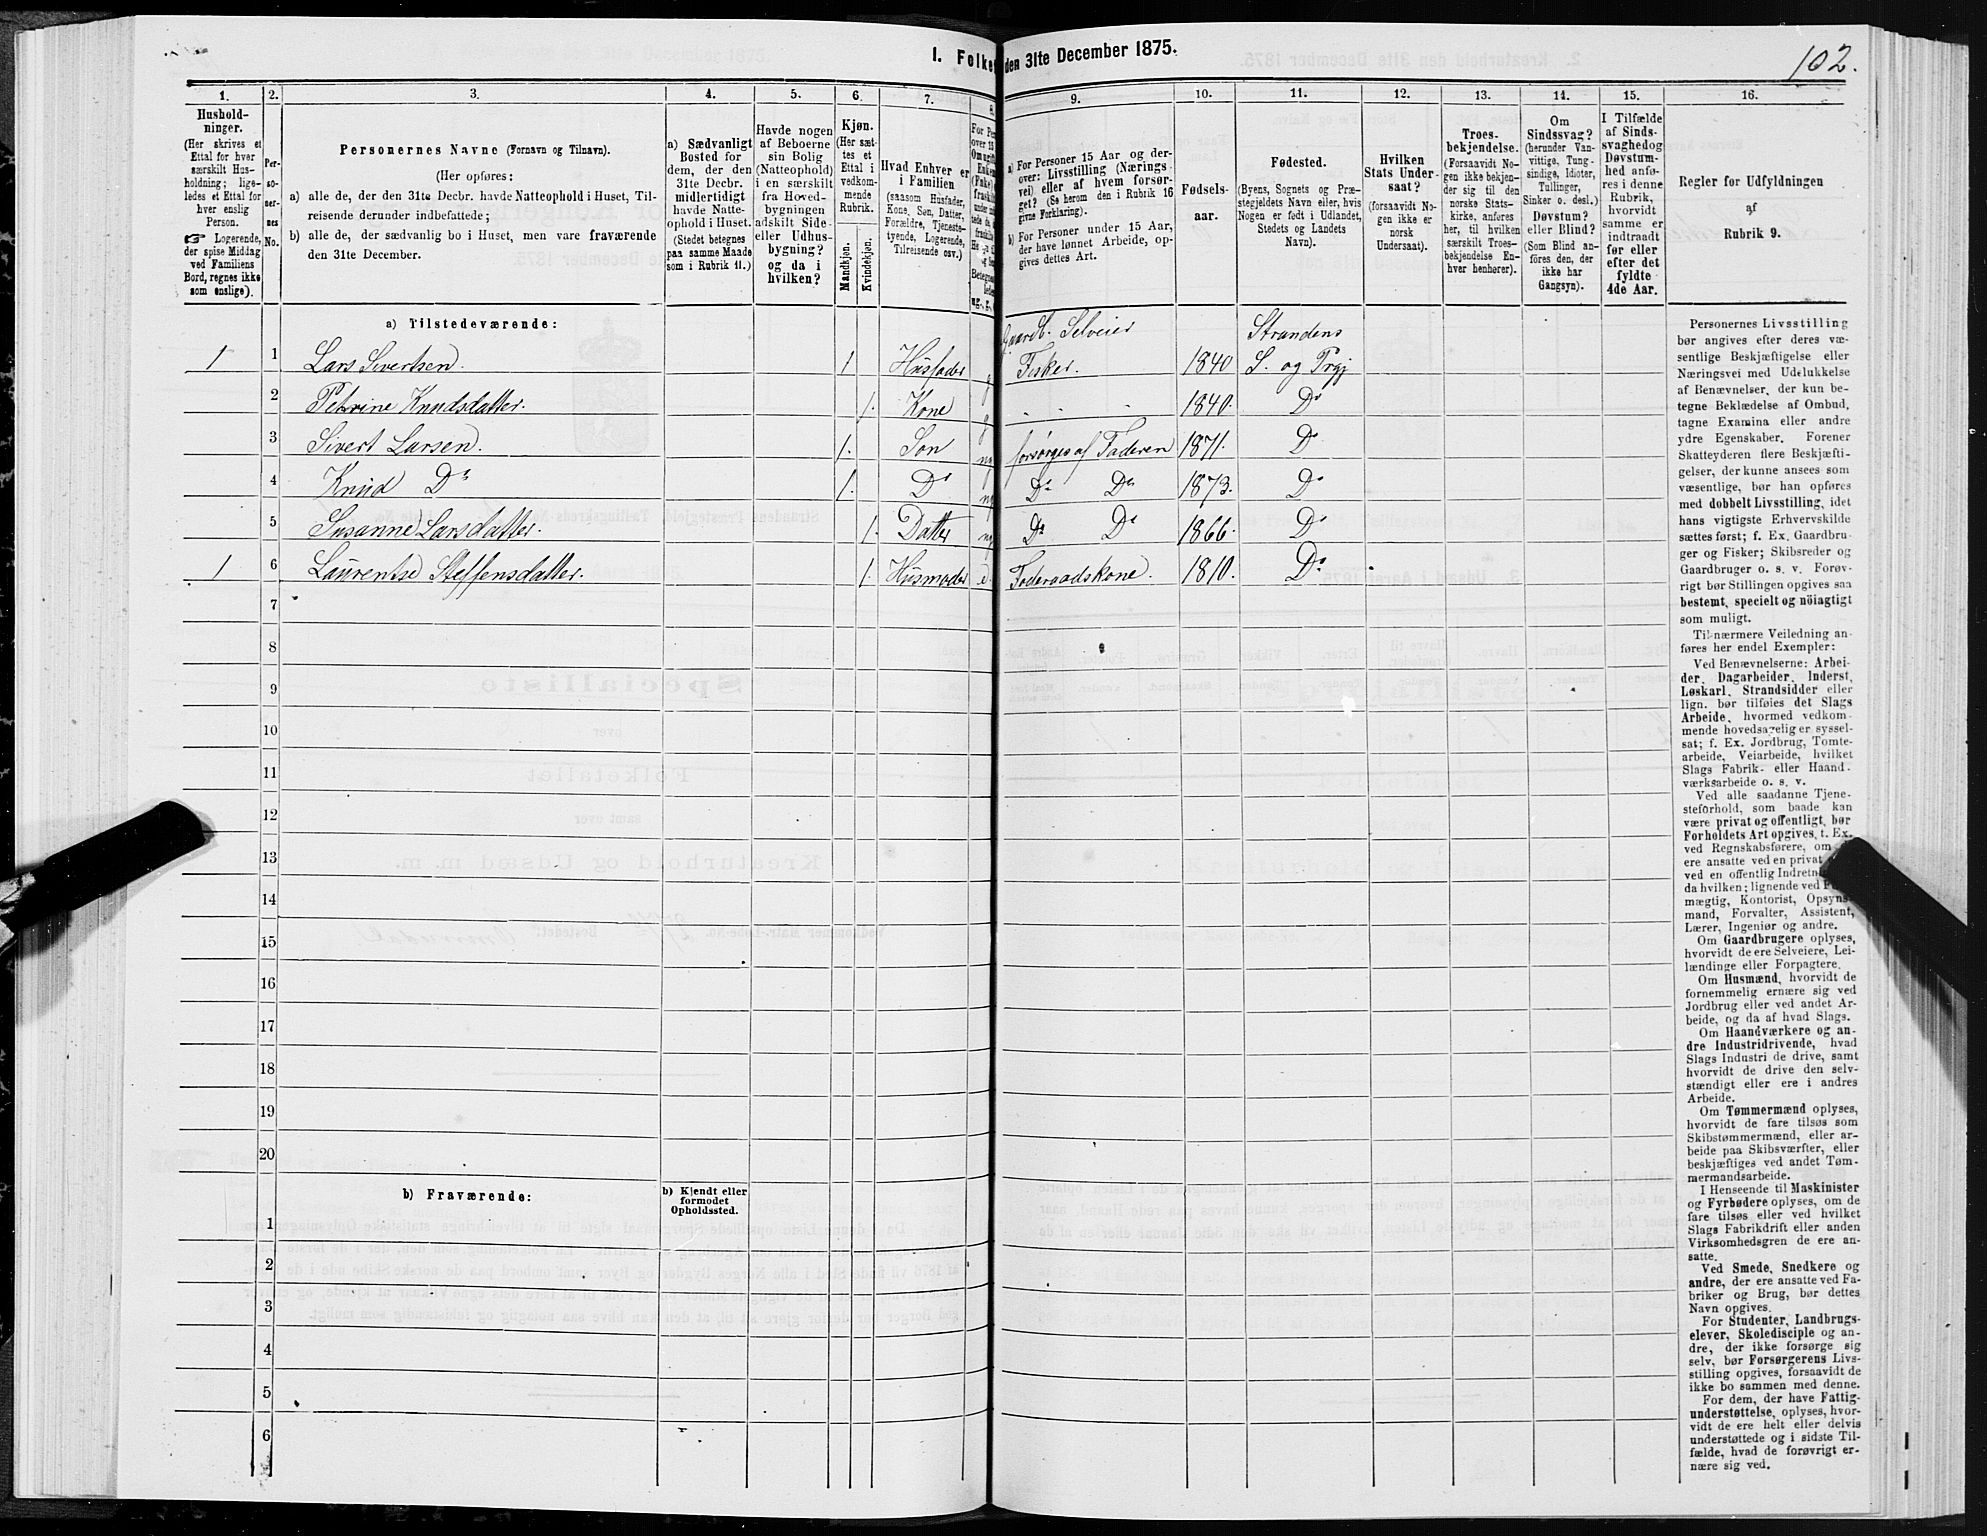 I. Folket den 31te December 1875.
102.
1.
2.
3.
4.
5.
6.
7.
8.
9.
10.
11.
12.
13.
14.
15.
16.
Husholdninger.
(Her skrives et
Ettal for hver
særskilt Husholdning; ligeledes et Ettal for
hver enslig
Person.
☞ Logerende,
der spise Middag
ved Familiens
Bord, regnes ikke
som enslige).
Personernes
No.
Personernes Navne (Fornavn og Tilnavn).
(Her opføres:
a) alle de, der den 31te Decbr. havde Natteophold i Huset, Tilreisende derunder indbefattede;
b) alle de, der sædvanlig bo i Huset, men vare fraværende
den 31te December.
a) Sædvanligt
Bosted for
dem, der den
31te Decbr.
midlertidigt
havde Natteophold i Huset.
(Stedet betegnes
paa samme Maade
som i Rubrik 11.)
Havde nogen
af Beboerne
sin Bolig
(Natteophold)
i en særskilt
fra Hovedbygningen
adskilt Side-
eller Udhusbygning?
og da i
hvilken?
Kjøn.
(Her sættes et
Ettal i
vedkommende
Rubrik.
Mandkjøn.
Kvindekjøn.
Hvad Enhver er
i Familien
(saasom Husfader,
Kone, Søn, Datter,
Forældre, Tjenestetyende, Logerende,
Tilreisende osv.)
a) For Personer 15 Aar og derover: Livsstilling (Næringsvei) eller af hvem forsørget? (Se herom den i Rubrik 16
givne Forklaring).
b) For Personer under 15 Aar,
der have lønnet Arbeide, opgives dettes Art.
Fødselsaar.
Fødested.
(Byens, Sognets og Præstegjeldets Navn eller, hvis
Nogen er født i Udlandet,
Stedets og Landets
Navn).
Hvilken
Stats Undersaat?
(forsaavidt Nogen ikke er
norsk
Undersaat).
Troesbekjendelse.
(Forsaavidt Nogen ikke bekjender sig til den
norske Statskirke, anføres
her, til hvilken
særskilt Troesbekjendelse Enhver henhører).
Om
Sindssvag?
(herunder Vanvittige, Tungsindige, Idioter,
Tullinger,
Sinker o. desl.)
Døvstum?
eller Blind?
(Som Blind anføres den, der
ikke har
Gangsyn).
I Tilfælde
af Sindssvaghed og
Døvstumhed anføres i denne
Rubrik,
hvorvidt
samme er
indtraadt
før eller
efter det
fyldte
4de Aar.
Regler for Udfyldningen
af
Rubrik 9.
a) Tilstedeværende:
1 1 Lars Sivertsen. 1 Husfader g Gaardb. Selveier Fisker. 1840 Strandens S. og Prgj
2 Petrine Knudsdatter. 1. Kone g . . . 1840. Do
3 Sivert Larsen. 1. Søn ug forsørges af Faderen 1871. Do
4 Knud Do 1. Do ug Do Do 1873. Do
5 Susanne Larsdatter. 1. Datter ug Do Do 1866. Do
1 6 Laurentse Steffensdatter. 1. Husmoder e. Føderaadskone. 1810. Do
7
8
9
10
11
12
13
14
15
16
17
18
19
20
b) Fraværende:
b) Kjendt eller
formodet
Opholdssted.
1
2
3
4
5
6
Personernes Livsstilling
bør angives efter deres væsentlige Beskjæftigelse eller
Næringsvei med Udelukkelse
af Benævnelser, der kun betegne Beklædelse af Ombud,
tagne Examina eller andre
ydre Egenskaber. Forener
Skatteyderen flere Beskjæftigelser, der kunne ansees som
væsentlige, bør han opføres
med dobbelt Livsstilling, idet
hans vigtigste Erhvervskilde
sættes først; f. Ex. Gaardbruger og Fisker; Skibsreder og
Gaardbruger o. s. v. Forøvrigt bør Stillingen opgives saa
bestemt, specielt og nöiagtigt
som muligt.
Til nærmere Veiledning anføres her endel Exempler:
Ved Benævnelserne: Arbeider, Dagarbeider, Inderst,
Løskarl, Strandsidder eller
lign. bør tilføies det Slags
Arbeide, hvormed vedkommende hovedsagelig er sysselsat; f. Ex. Jordbrug, Tomtearbeide, Veiarbeide, hvilket
Slags Fabrik- eller Haandværksarbeide o. s. v.
Ved alle saadanne Tjenesteforhold, som baade kan
være privat og offentligt, bør
Forholdets Art opgives, t. Ex.
ved Regnskabsførere, om
ere ansatte ved en privat
ved en offentlig
da hvilken; lignende ved
mægtig, Kontorist, Opsynsmand, Forvalter, Assistent,
Lærer, Ingeniør og andre.
Om Gaardbrugere oplyses,
hvorvidt de ere Selveiere, Leilændinge eller Forpagtere.
Om Husmænd, hvorvidt de
fornemmelig ernære sig ved
Jordbrug eller ved andet Arbeide, og da af hvad Slags.
Om Haandværkere og andre Industridrivende, hvad
Slags Industri de drive, samt
hvorvidt de drive den selvstændigt eller ere i andres
Arbeide.
Om Tømmermænd oplyses,
hvorvidt de fare tilsøs som
Skibstømmermænd, eller arbeide paa Skibsværfter, eller
beskjæftiges ved andet Tømmermandsarbeide.
I Henseende til Maskinister
og Fyrbødere oplyses, om de
fare tilsøs eller ved hvilket
Slags Fabrikdrift eller anden
Virksomhedsgren de ere ansatte.
Ved Smede, Snedkere og
andre, der ere ansatte ved Fabriker og Brug, bør dettes
Navn opgives.
For Studenter, Landbrugselever, Skoledisciple og andre, der ikke forsørge sig
selv, bør Forsørgerens Livsstilling opgives, forsaavidt de
ikke bo sammen med denne.
For dem, der have Fattigunderstøttelse, oplyses, hvorvidt de ere helt eller delvis
understøttede og i sidste Tilfælde, hvad de forøvrigt ernære sig ved.